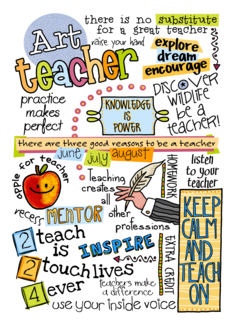 there is no substitute
for a great teacher
raise your hand
Art
teacher
explore
dream
encourage
practice
makes
perfect
KNOWLEDGE
IS
POWER
DISCOVER
WILDLIFE
be a
teacher!
there are three good reasons to be a teacher
june july august
apple for teacher
Teaching
creates
all
other
professions
HOMEWORK
listen
to your
teacher
recess
MENTOR
2 teach
is
INSPIRE
2 touch lives
4 ever
EXTRA CREDIT
KEEP
CALM
AND
TEACH
ON
teachers make
a difference
use your inside voice